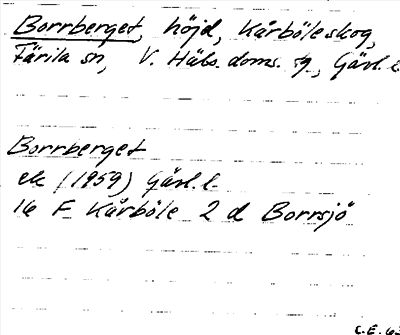 Borrberget, höjd, Kårböleskog,
Färila sn, V. Häls. doms. tg, Gävl. l.
Borrberget
ek (1959) Gävl. l.
16 F Kårböle 2 d Borrsjö
C.E. 63